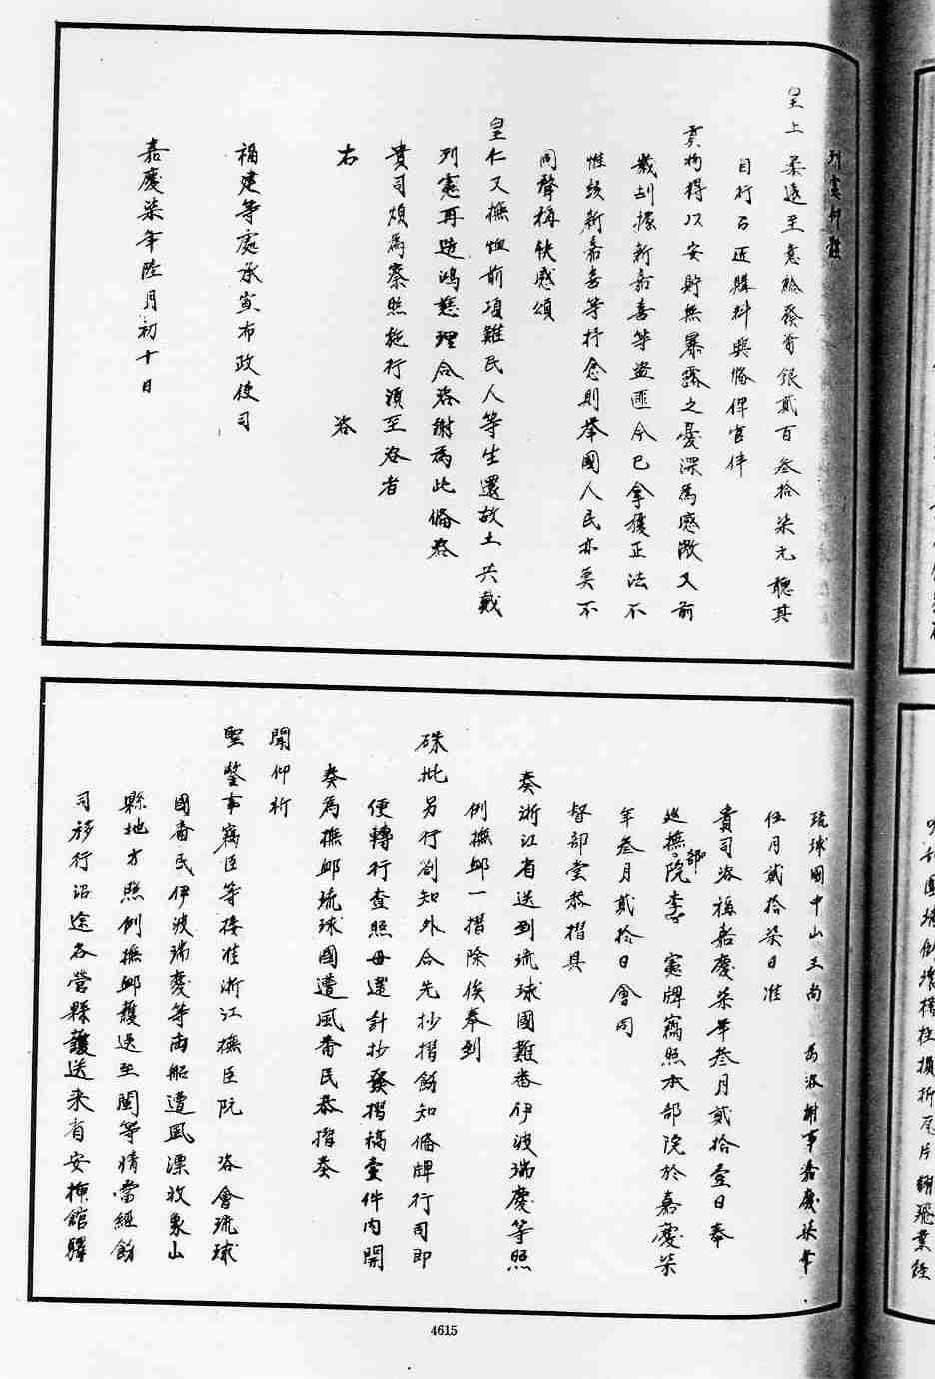 列憲仰體
皇上柔遠至意給發番銀貳百叁拾柒元聽其
自行召匠購料興修俾官伴
貢物得以安貯無暴露之憂深為感激又前
載劫掠新嘉喜等盜匪今已拿獲正法不
惟該新嘉喜等抒忿則舉國人民亦莫不
同聲稱快感頌
皇仁又撫恤前項難民人等生還故土共戴
列憲再造鴻慈理合咨謝為此備咨
貴司煩為察照施行須至咨者
右 咨
福建等處承宣布政使司
嘉慶柒年陸月初十日
琉球國中山王尚 為咨謝事嘉慶柒年
伍月貳拾柒日准
貴司咨福嘉慶柒年叁月貳拾壹日奉
巡撫部院李 憲牌竊照本部院於嘉慶柒
年叁月貳拾日會同
督部堂恭摺具
奏浙江省送到琉球國難番伊波瑞慶等照
例撫卹一摺除俟奉到
硃批另行劄知外合先抄摺飭知備牌行司即
便轉行查照毋違計抄發摺稿壹件內開
奏為撫卹琉球國遭風番民恭摺奏
聞仰祈
聖鑒事竊臣等接准浙江撫臣阮 咨會琉球
國番民伊波瑞慶等兩船遭風漂收象山
縣地方照例撫卹護送至閩等情當經飭
司移行沿途各營縣護送來省安揷館驛
4615